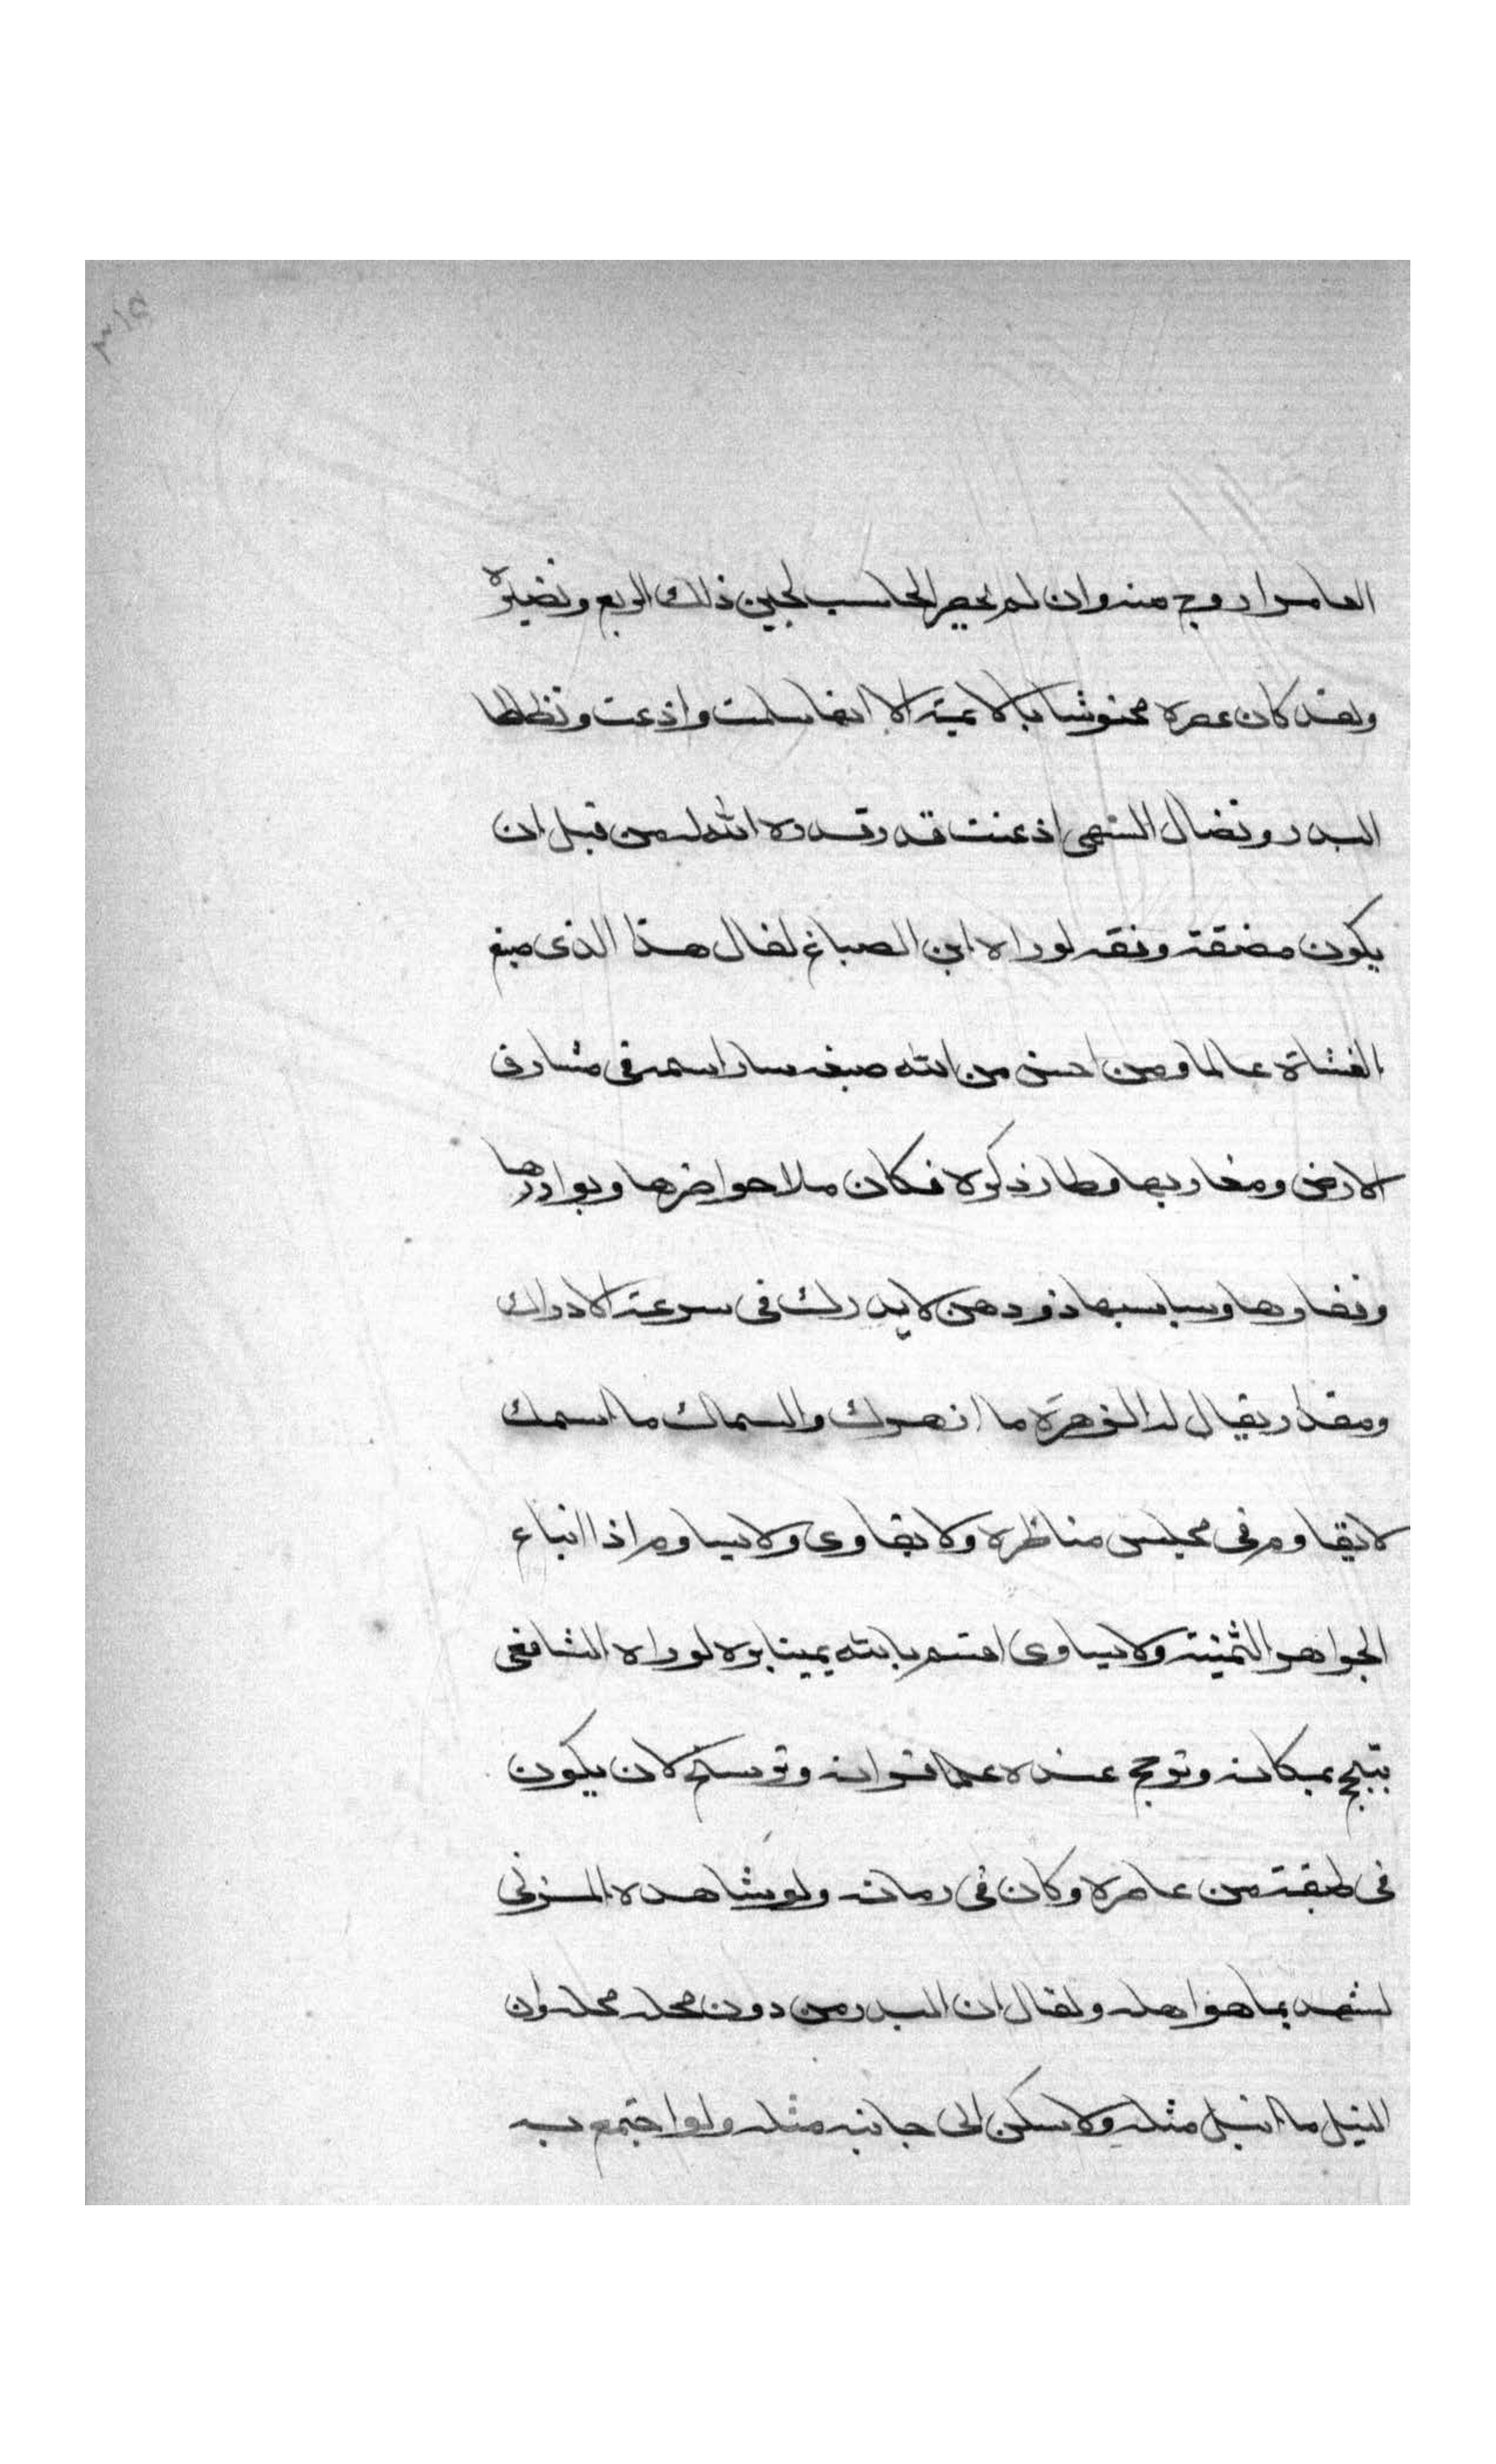 ٣١٥
العامر اروج منه وان لم يحصر الحاسب لجين ذلك الربع ونضيره
ولقد كان عصره محنوشا بالائمية الا انها سلمت واذعنت وتطلطا
البدر وتضال السهى اذ عنت قد وقدره الله له من قبل ان
يكون مضقة ونقه لوراه ابن الصباغ لقال هذا الذي صبغ
الفشاة عالما ومن احسن من الله صبغه سار اسمه في مشارق
الارض ومغاربها وطار ذكره فكان ملا حواضرها وبوادرها
وقفارها وسباسبها ذو ذهن لا يدرك في سرعة الادراك
ومقدار يقال له الزهرة ما ازهرك والسماك ما اسمك
لا يقاوم في مجلس مناظره ولا يقاوى ولا يساوم اذا ابتاع
الجواهر الثمينة ولا يساوى اقسم بالله يمينا بره لو راه الشافعي
تبجح بمكانه وترجح عنده على اقرانه وترشح لان يكون
في طبقة من عاصره وكان في زمانه ولو شاهده المزني
لشهد بما هو اهله ولقال ان البدر من دون محله محله وان
النيل ما انيل مثله ولا سكن الى جانبه مثله ولو اجتمع به